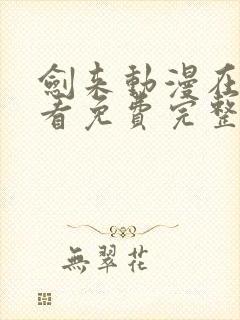 劍来動漫在
看免費完整
無翠花